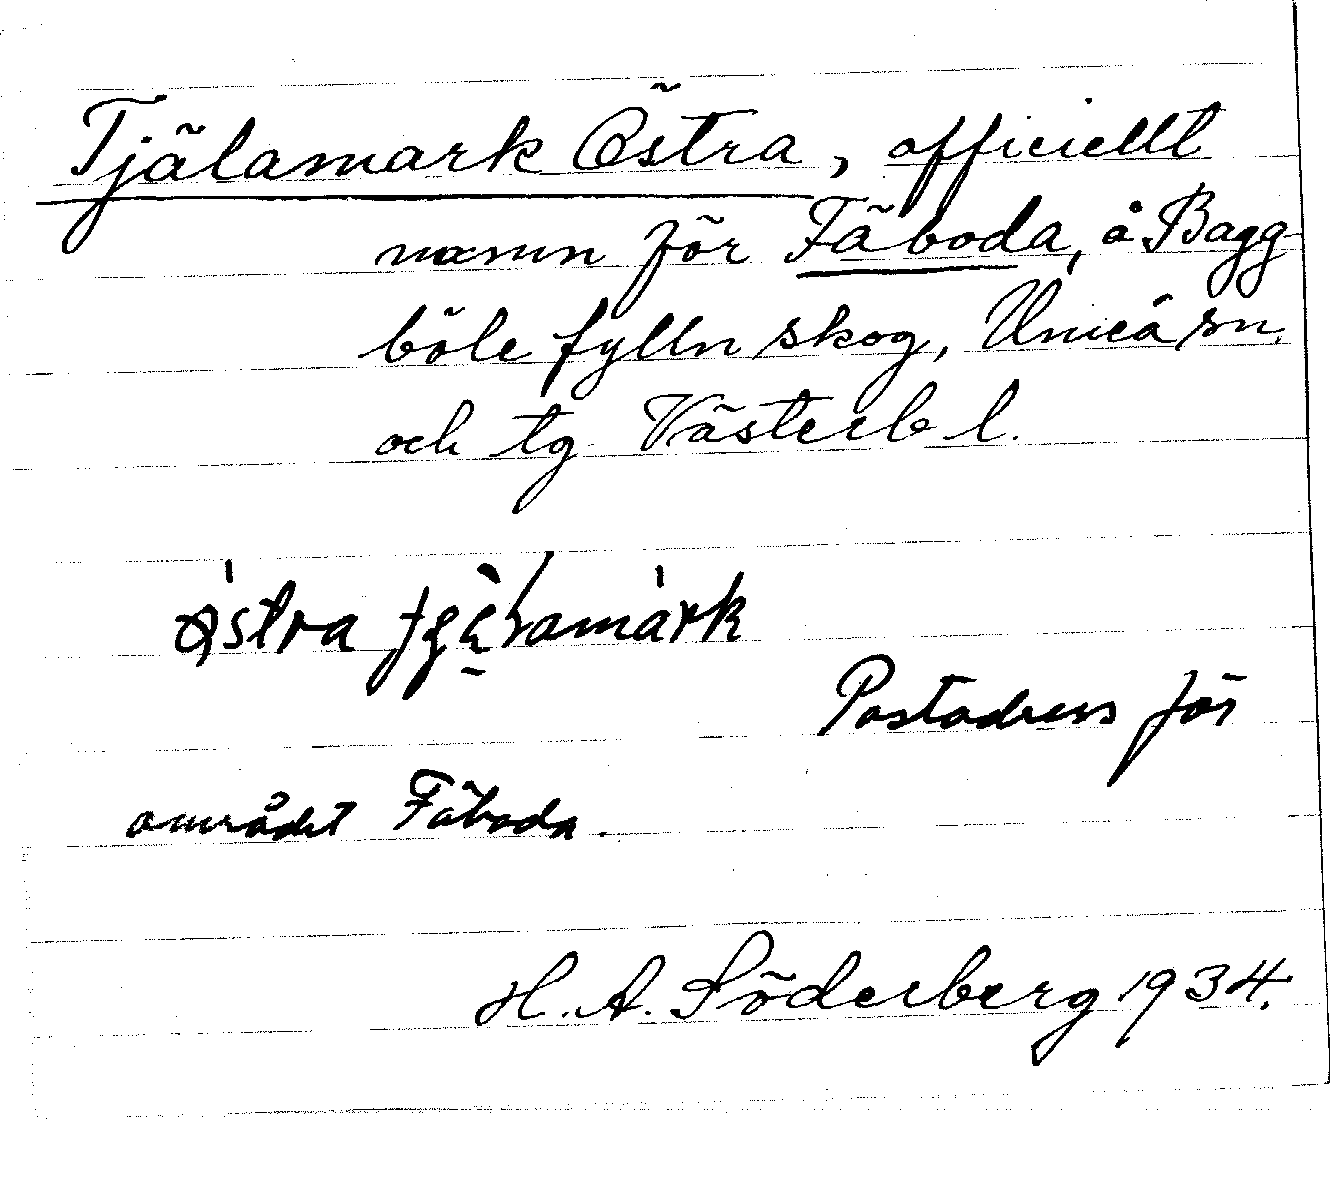 Tjälamark Östra, officiellt
namn för Fäboda, å Bagg-
böle fylln skog, Umeå sn.
och tg Västerb l.
Postadress för
området Fäboda.
H. A. Söderberg 1934.